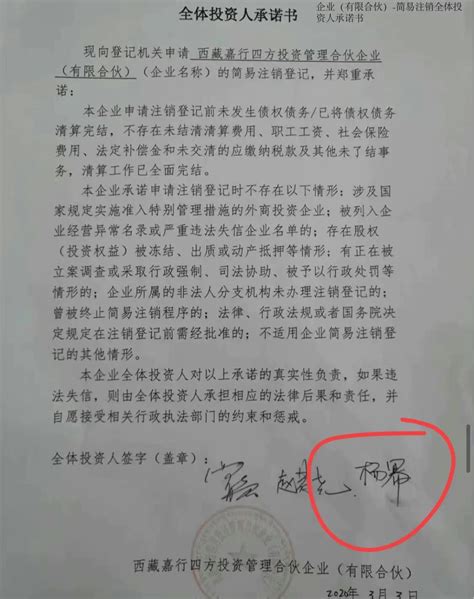 全体投资人承诺书
企业（有限合伙）-简易注销全体投
资人承诺书
现向登记机关申请 西藏嘉行四方投资管理合伙企业
（有限合伙）（企业名称）的简易注销登记，并郑重承
诺：
本企业申请注销登记前未发生债权债务/已将债权债务
清算完结，不存在未结清清算费用、职工工资、社会保险
费用、法定补偿金和未交清的应缴纳税款及其他未了结事
务，清算工作已全面完结。
本企业承诺申请注销登记时不存在以下情形：涉及国
家规定实施准入特别管理措施的外商投资企业；被列入企
业经营异常名录或严重违法失信企业名单的；存在股权
（投资权益）被冻结、出质或动产抵押等情形；有正在被
立案调查或采取行政强制、司法协助、被予以行政处罚等
情形的；企业所属的非法人分支机构未办理注销登记的；
曾被终止简易注销程序的；法律、行政法规或者国务院决
定规定在注销登记前需经批准的；不适用企业简易注销登
记的其他情形。
本企业全体投资人对以上承诺的真实性负责，如果违
法失信，则由全体投资人承担相应的法律后果和责任，并
自愿接受相关行政执法部门的约束和惩戒。
全体投资人签字（盖章）： 杨幂
西藏嘉行四方投资管理合伙企业（有限合伙）
2020年 3月 3日